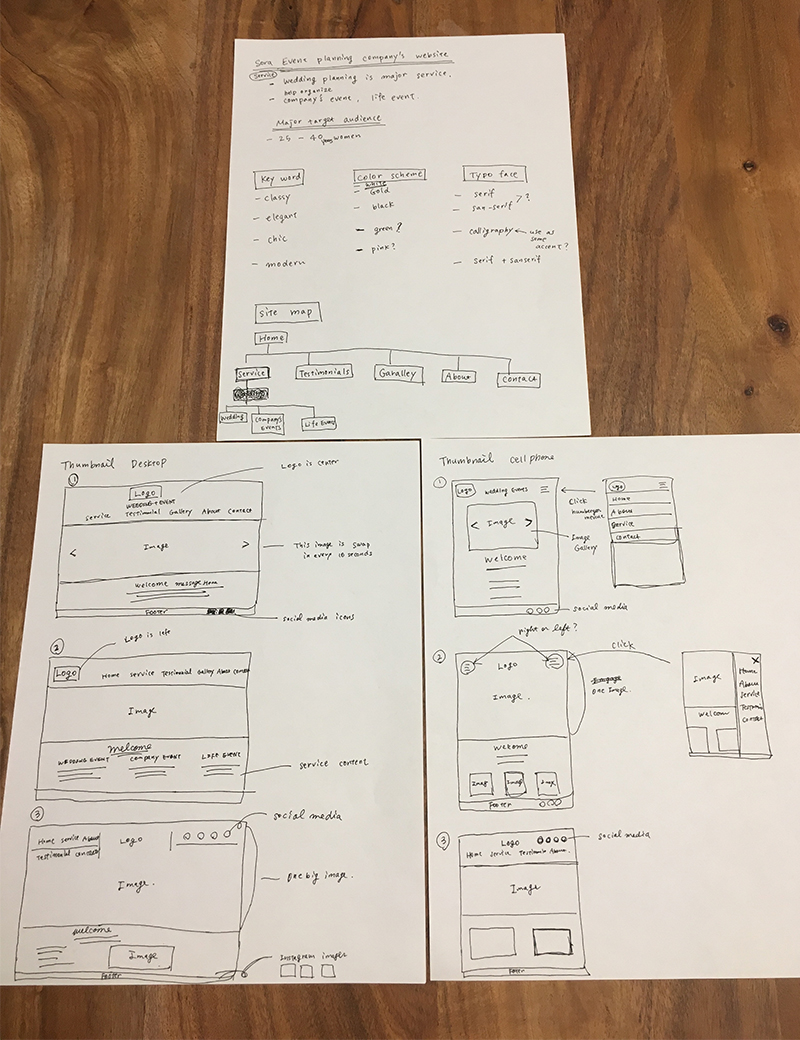 Sora Event planning company's website
Service
- wedding planning is major service.
help organize
- company's event, life event.
Major target audience
- 25 - 40 women
Key word
- classy
- elegant
- chic
- modern
Color scheme
- white
- Gold
- black
- green?
- pink?
Typo face
- serif
- san-serif > ?
- calligraphy ← use as some accent?
- serif + sanserif
Site map
Home
Service Testimonials Garalley About Contact
Wedding Company's Events Life Event
Thumbnail Desktop
1
Logo is center
Logo
WEDDING + EVENT
Service Testimonial Gallery About Contact
< Image >
This image is swap in every 10 seconds
Welcome message Here
Footer
Social media icons
2
Logo is left
Logo Home Service Testimonial Gallery About Contact
Image
Welcome
WEDDING EVENT COMPANY EVENT LIFE EVENT
Service content
3
Home Service About
Testimonial Contact
Logo
Social media
Image.
One big image.
Welcome
Image
Footer
Instagram images
Thumbnail Cellphone
1
Logo Wedding Events
< Image >
Image Gallery
Welcome
Social media
Click
Logo
Home
About
Service
Contact
right or left?
2
Logo
Click
Image.
One Image.
Welcome
Imag Imag Imag
Footer
Image
Welcom
X
Home
About
Service
Testimoni
Contact
3
Logo
Social media
Home Service Testimonials About
Image
Footer